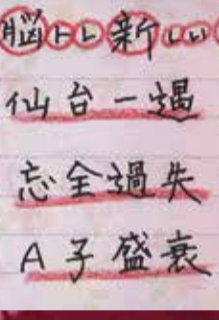 脳トレ新しい
仙台一遇
忘全過失
A子盛衰